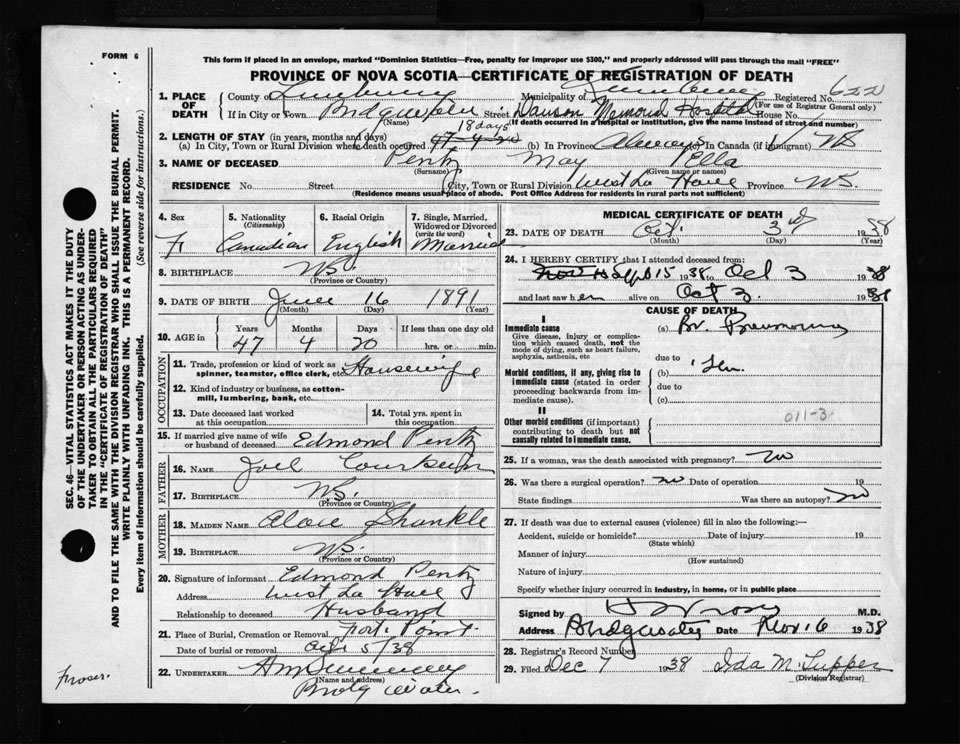 FORM 6
This form if placed in an envelope, marked "Dominion Statistics—Free, penalty for improper use $300," and properly addressed will pass through the mail "FREE"
PROVINCE OF NOVA SCOTIA—CERTIFICATE OF REGISTRATION OF DEATH
1. PLACE OF DEATH County of Lunenburg Municipality of Lunenburg Registered No. 622
(For use of Registrar General only)
If in City or Town Bridgewater Street Dawson Memorial Hospital House No.
(Name) (If death occurred in a hospital or institution, give the name instead of street and number)
2. LENGTH OF STAY (in years, months and days) 18 days
(a) In City, Town or Rural Division where death occurred (b) In Province Always (c) In Canada (if immigrant) NS
3. NAME OF DECEASED Pentz May Ella
(Surname) (Given name or names)
RESIDENCE No. Street City, Town or Rural Division West La Have Province NS.
(Residence means usual place of abode. Post Office Address for residents in rural parts not sufficient)
4. Sex F
5. Nationality (Citizenship) Canadian
6. Racial Origin English
7. Single, Married, Widowed or Divorced (write the word) Married
8. BIRTHPLACE NS.
(Province or Country)
9. DATE OF BIRTH June 16 1891
(Month) (Day) (Year)
10. AGE in Years Months Days If less than one day
47 4 20 hrs. or min.
OCCUPATION
11. Trade, profession or kind of work as spinner, teamster, office clerk, etc. Housewife
12. Kind of industry or business, as cotton-mill, lumbering, bank, etc.
13. Date deceased last worked at this occupation
14. Total yrs. spent in this occupation
15. If married give name of wife or husband of deceased Edmond Pentz
FATHER
16. NAME Joel
17. BIRTHPLACE NS.
(Province or Country)
MOTHER
18. MAIDEN NAME Shankle
19. BIRTHPLACE NS.
(Province or Country)
20. Signature of informant Edmond Pentz
Address West La Have
Relationship to deceased Husband
21. Place of Burial, Cremation or Removal Fort Point
Date of burial or removal 5/38
22. UNDERTAKER
(Name and address)
Bridgewater.
MEDICAL CERTIFICATE OF DEATH
23. DATE OF DEATH Oct. 3rd 1938
(Month) (Day) (Year)
24. I HEREBY CERTIFY that I attended deceased from:
Sept 15 1938 to Oct 3 1938
and last saw her alive on Oct 3. 1938
CAUSE OF DEATH
I
Immediate cause
Give disease, injury or complication which caused death, not the mode of dying, such as heart failure, asphyxia, asthenia, etc
(a) Br. Pneumonia
due to
Morbid conditions, if any, giving rise to immediate cause (stated in order proceeding backwards from immediate cause).
(b)
due to
(c)
II
Other morbid conditions (if important) contributing to death but not causally related to immediate cause.
011-3
25. If a woman, was the death associated with pregnancy? no
26. Was there a surgical operation? no Date of operation 19
State findings Was there an autopsy? no
27. If death was due to external causes (violence) fill in also the following:—
Accident, suicide or homicide? Date of injury 19
(State which)
Manner of injury
(How sustained)
Nature of injury
Specify whether injury occurred in industry, in home, or in public place
Signed by M.D.
Address Bridgewater Date Nov 6 1938
28. Registrar's Record Number
29. Filed Dec 7 1938 Ida M. Tupper
(Division Registrar)
SEC. 46—VITAL STATISTICS ACT MAKES IT THE DUTY
OF THE UNDERTAKER OR PERSON ACTING AS UNDER-
TAKER TO OBTAIN ALL THE PARTICULARS REQUIRED
IN THE "CERTIFICATE OF REGISTRATION OF DEATH"
AND TO FILE THE SAME WITH THE DIVISION REGISTRAR WHO SHALL ISSUE THE BURIAL PERMIT.
WRITE PLAINLY WITH UNFADING INK. THIS IS A PERMANENT RECORD.
Every item of information should be carefully supplied. (See reverse side for instructions.)